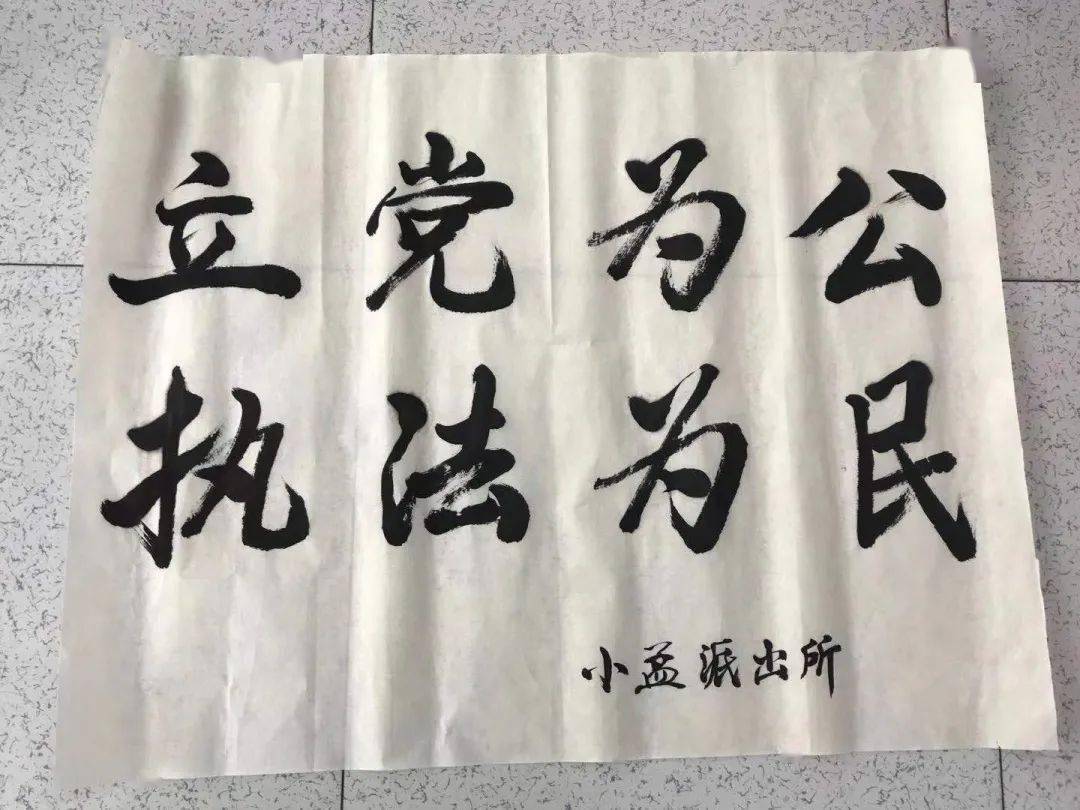 立党为公
执法为民
小孟派出所